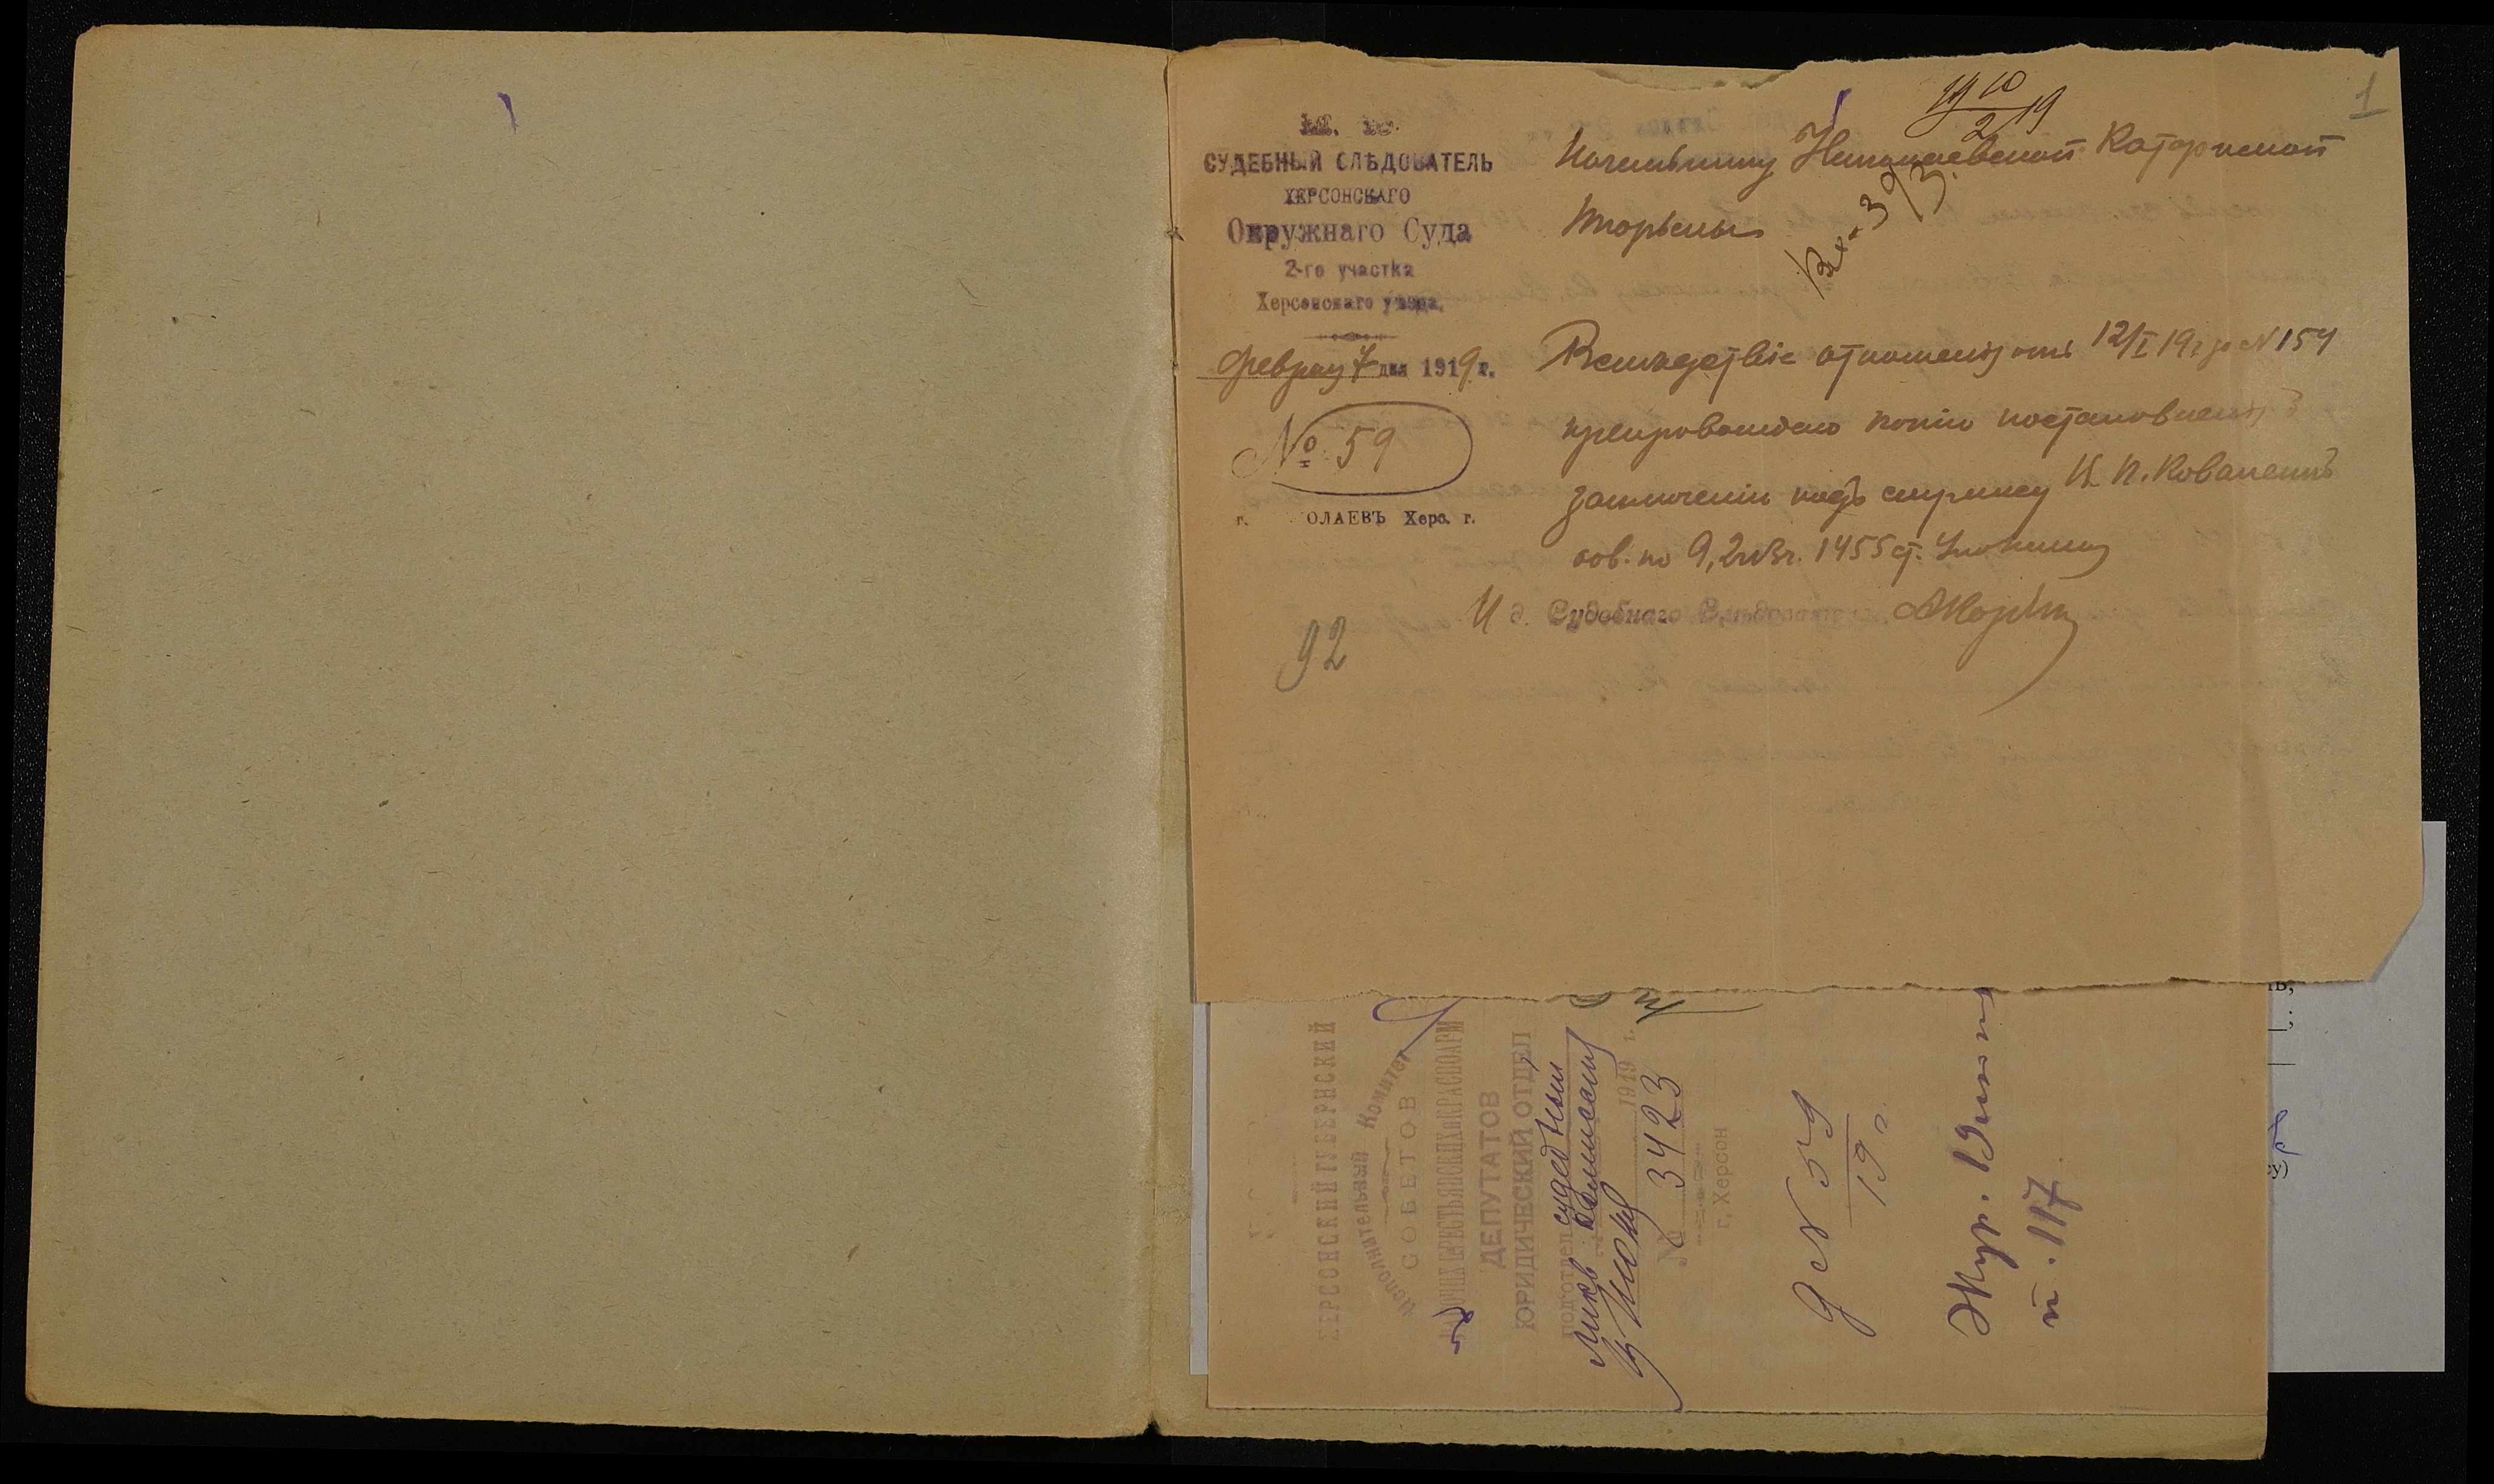 1
19 10/2 19
М. Ю.
СУДЕБНЫЙ СЛѢДОВАТЕЛЬ
ХЕРСОНСКАГО
Окружнаго Суда
2-го участка
Херсонскаго уѣзда.
Февраля 7 дня 1919 г.
№ 59
г. ОЛАЕВЪ Херс. г.
92
Начальнику Николаевской Каторжной
Тюрьмы
Вх. 393.
Вслѣдствіе отношенія отъ 12/I 19 г за N 154
препровождаю копію постановленія о
заключеніи подъ стражу И. П. Коваленко
обв. по 9, 2 и 3 ч. 1455 ст. Улож. о нак
И д. Судебнаго Слѣдователя
ХЕРСОНСКИЙ ГУБЕРНСКИЙ
Исполнительный Комитет
СОВЕТОВ
РАБОЧИХ КРЕСТЬЯНСКИХ и КРАСНОАРМ
ДЕПУТАТОВ
ЮРИДИЧЕСКИЙ ОТДЕЛ
подотдел судебный
1919 г.
№ 3423
г. Херсон
N 59
19 г.
Жур.
п. 117